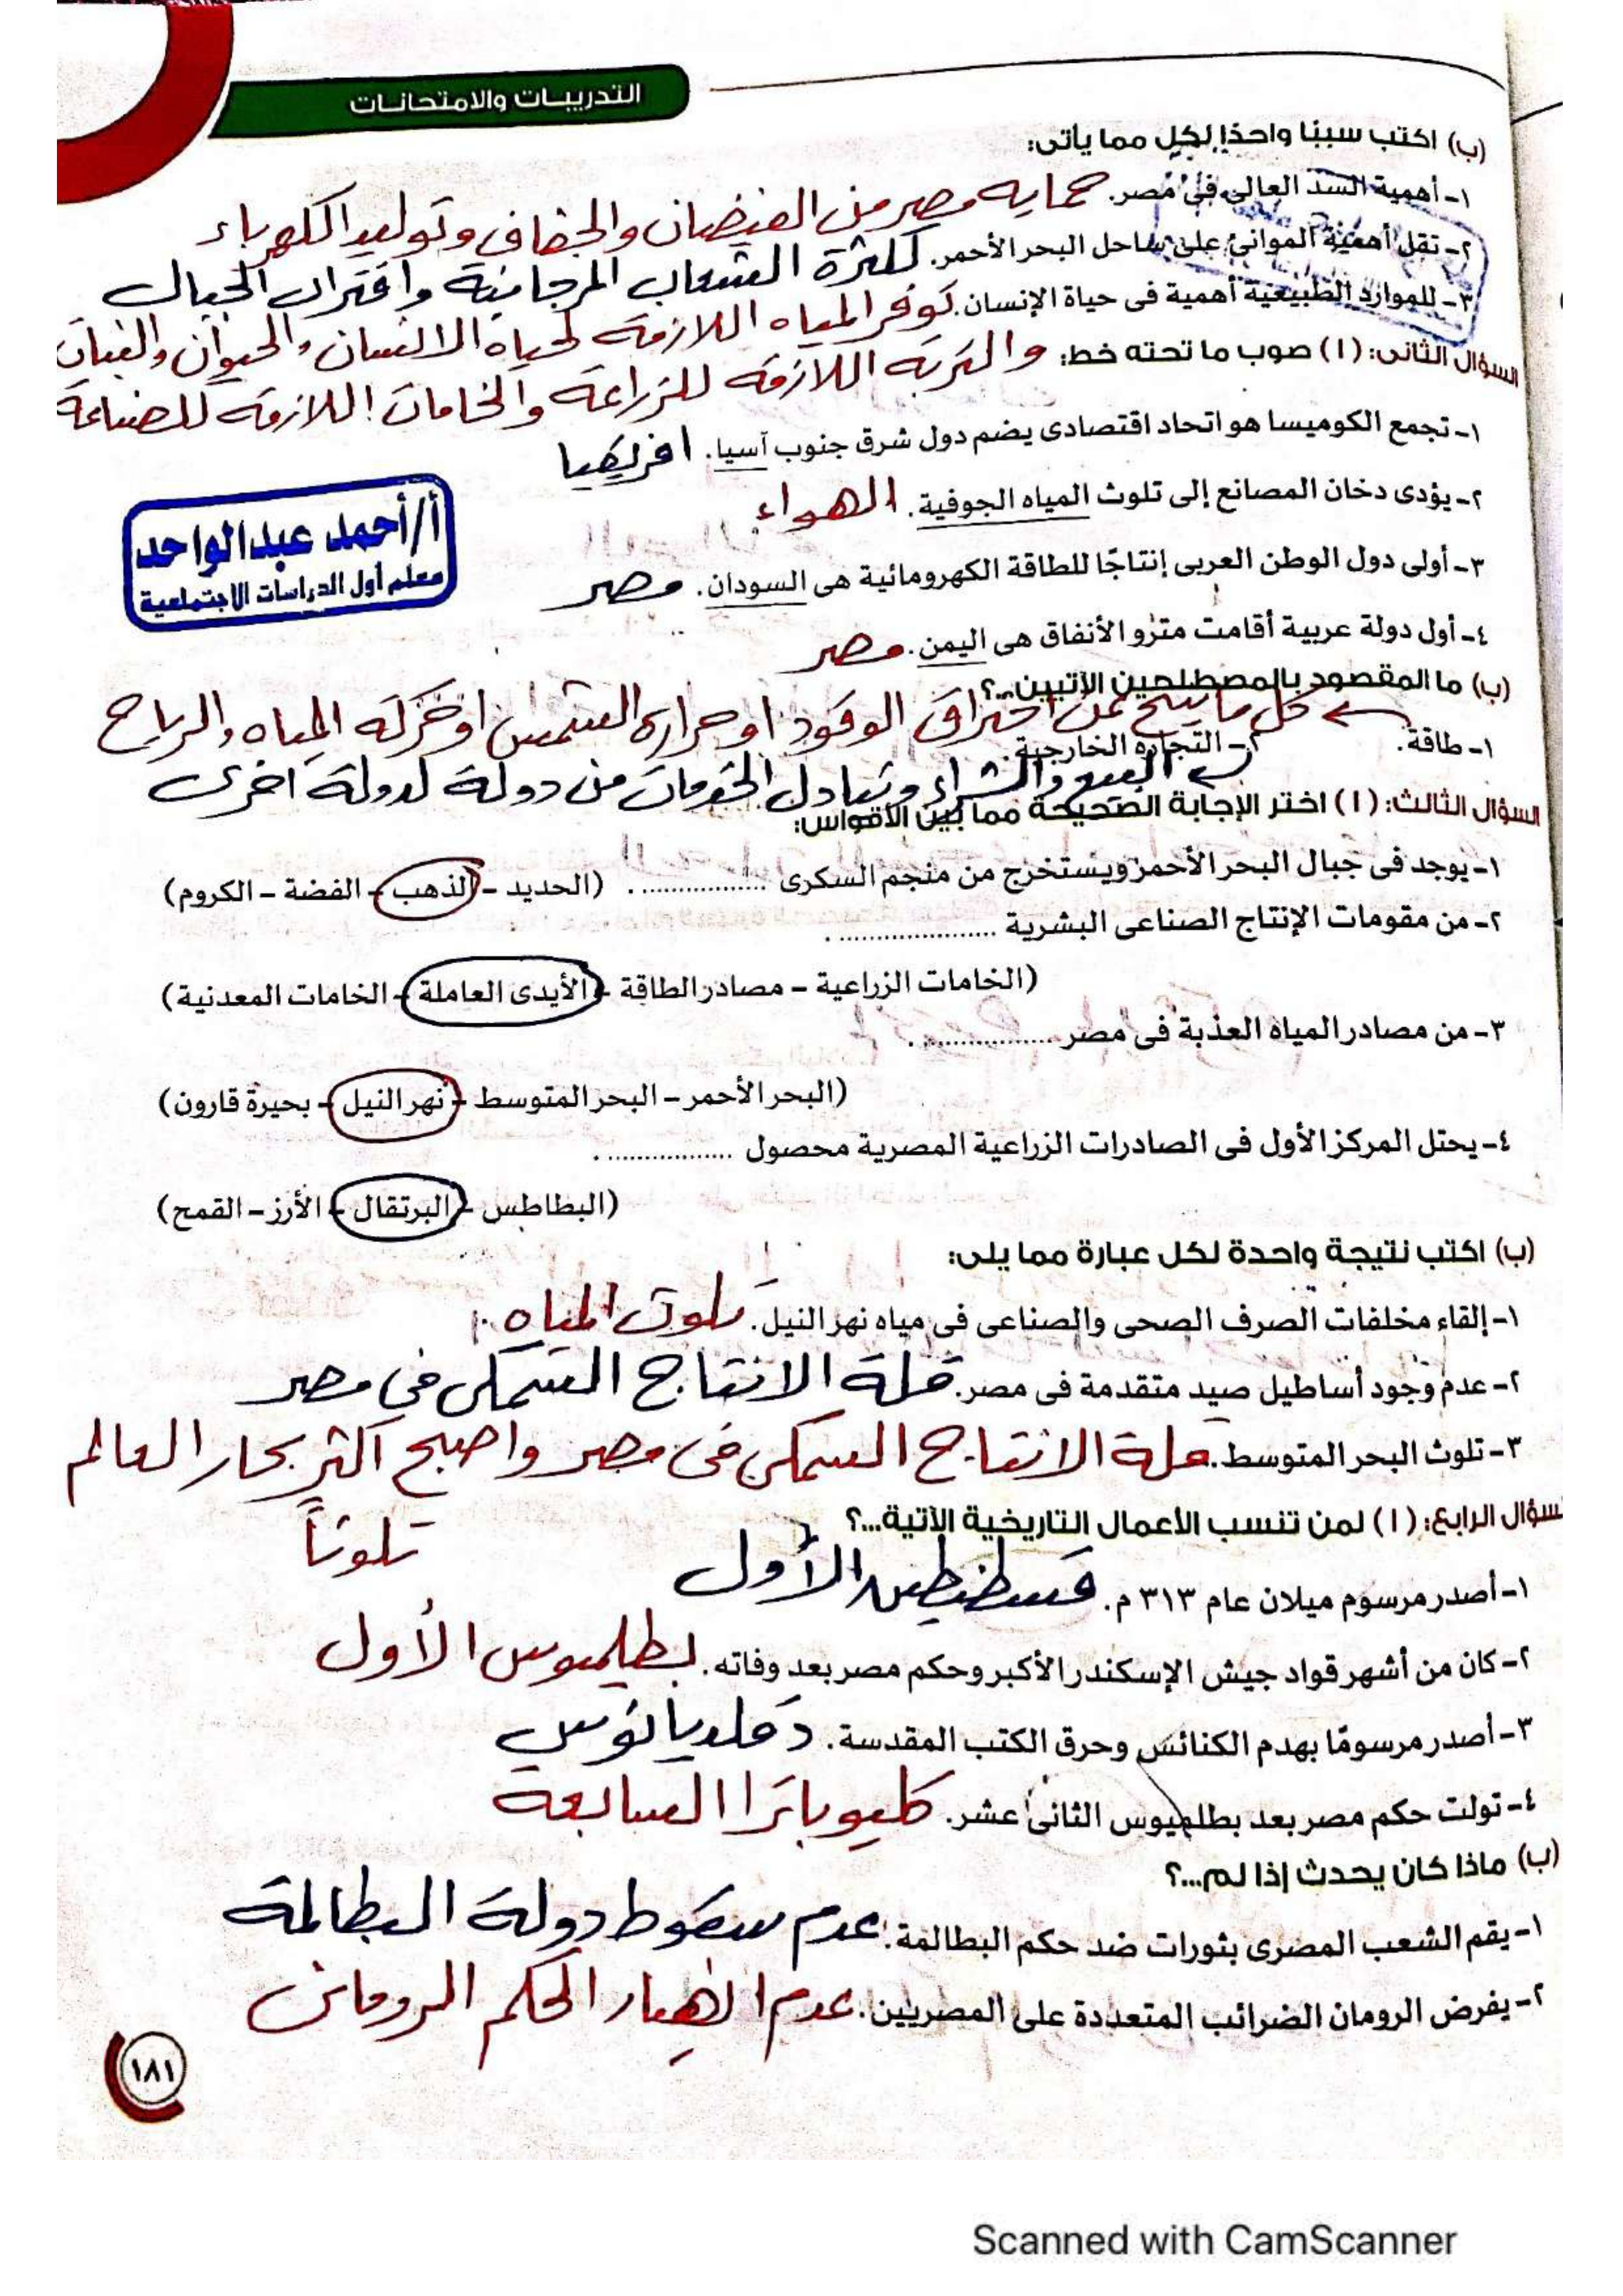 التدريبات والامتحانات
(ب) اكتب سببًا واحدًا لكل مما يأتى:
١- أهمية السد العالى فى مصر. حمايه مصر من الفيضان والجفاف وتوليد الكهرباء
٢- تقل أهمية الموانئ على ساحل البحر الأحمر. لكثرة الشعاب المرجانية واقتراب الجبال
٣- للموارد الطبيعية أهمية فى حياة الإنسان. توفر المياه اللازمة لحياه الانسان والحيوان والنبات
السؤال الثانى: (١) صوب ما تحته خط: والتربه اللازمة للزراعة والخامات اللازمة للصناعة
١- تجمع الكوميسا هو اتحاد اقتصادى يضم دول شرق جنوب آسيا. افريقيا
٢- يؤدى دخان المصانع إلى تلوث المياه الجوفية. الهواء
٣- أولى دول الوطن العربى إنتاجًا للطاقة الكهرومائية هى السودان. مصر
أ/أحمد عبدالواحد
معلم أول الدراسات الاجتماعية
٤- أول دولة عربية أقامت مترو الأنفاق هى اليمن. مصر
(ب) ما المقصود بالمصطلحين الآتيين...؟
١- طاقة. كل ما ينتج عن احتراق الوقود او حراره الشمس او حركه المياه والرياح
٢- التجارة الخارجية. البيع والشراء وتبادل الخدمات من دولة لدولة اخرى
السؤال الثالث: (١) اختر الإجابة الصحيحة مما بين الأقواس:
١- يوجد فى جبال البحر الأحمر ويستخرج من منجم السكرى ................. (الحديد - الذهب - الفضة - الكروم)
٢- من مقومات الإنتاج الصناعى البشرية .....................
(الخامات الزراعية - مصادر الطاقة - الأيدى العاملة - الخامات المعدنية)
٣- من مصادر المياه العذبة فى مصر .................
(البحر الأحمر - البحر المتوسط - نهر النيل - بحيرة قارون)
٤- يحتل المركز الأول فى الصادرات الزراعية المصرية محصول .................
(البطاطس - البرتقال - الأرز - القمح)
(ب) اكتب نتيجة واحدة لكل عبارة مما يلى:
١- إلقاء مخلفات الصرف الصحى والصناعى فى مياه نهر النيل. تلوث المياه
٢- عدم وجود أساطيل صيد متقدمة فى مصر. قلة الانتاج السمكى فى مصر
٣- تلوث البحر المتوسط. قلة الانتاج السمكى فى مصر واصبح اكثر بحار العالم
تلوثاً
السؤال الرابع: (١) لمن تنسب الأعمال التاريخية الآتية...؟
١- أصدر مرسوم ميلان عام ٣١٣ م. قسطنطين الأول
٢- كان من أشهر قواد جيش الإسكندر الأكبر وحكم مصر بعد وفاته. بطلميوس الأول
٣- أصدر مرسومًا بهدم الكنائس وحرق الكتب المقدسة. دقلديانوس
٤- تولت حكم مصر بعد بطلميوس الثانى عشر. كليوباترا السابعة
(ب) ماذا كان يحدث إذا لم...؟
١- يقم الشعب المصرى بثورات ضد حكم البطالمة. عدم سقوط دولة البطالمة
٢- يفرض الرومان الضرائب المتعددة على المصريين. عدم انهيار الحكم الرومانى
١٨١
Scanned with CamScanner